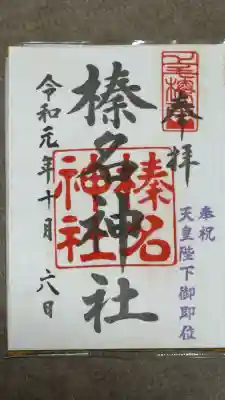 奉拝
奉祝
天皇陛下御即位
榛名神社
榛名
神社
令和元年十月六日